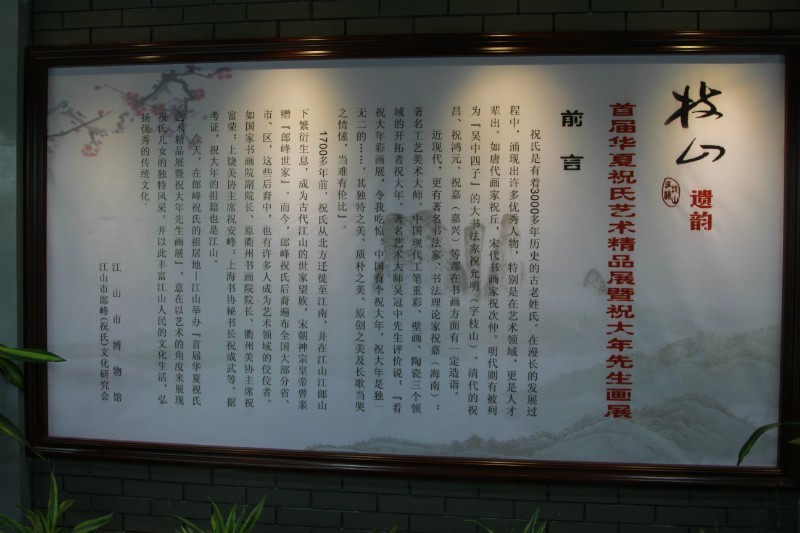 枝山
遗韵
首届华夏祝氏艺术精品展暨祝大年先生画展
前言
祝氏是有着3000多年历史的古老姓氏。在漫长的发展过
程中，涌现出许多优秀人物，特别是在艺术领域，更是人才
辈出。如唐代画家祝丘，宋代书画家祝次仲。明代则有被列
为『吴中四子』的大书法家祝允明（字枝山）。清代的祝
昌、祝鸿元、祝嘉（嘉兴）等都在书画方面有一定造诣。
近现代，更有著名书法家、书法理论家祝嘉（海南）；
著名工艺美术大师、中国现代工笔重彩、壁画、陶瓷三个领
域的开拓者祝大年。著名艺术大师吴冠中先生评价说，『看
祝大年彩画展，令我吃惊，中国有个祝大年，祝大年是独一
无二的……，其独特之美、质朴之美、原创之美及长歌当哭
之情愫，当难有伦比』。
1700多年前，祝氏从北方迁徙至江南，并在江山江郎山
下繁衍生息，成为古代江山的世家望族，宋朝神宗皇帝曾亲
赠『郎峰世家』。而今，郎峰祝氏后裔遍布全国大部分省、
市、区，这些后裔中，也有许多人成为艺术领域的佼佼者。
如国家书画院副院长、原衢州书画院院长、衢州美协主席祝
富荣；上饶美协主席祝安峰；上海书协秘书长祝成武等。据
考证，祝大年的祖籍也是江山。
今天，在郎峰祝氏的祖居地——江山举办『首届华夏祝氏
艺术精品展暨祝大年先生画展』，意在以艺术的角度来展现
祝氏儿女的独特风采，并以此丰富江山人民的文化生活，弘
扬优秀的传统文化。
江山市博物馆
江山市郎峰(祝氏)文化研究会